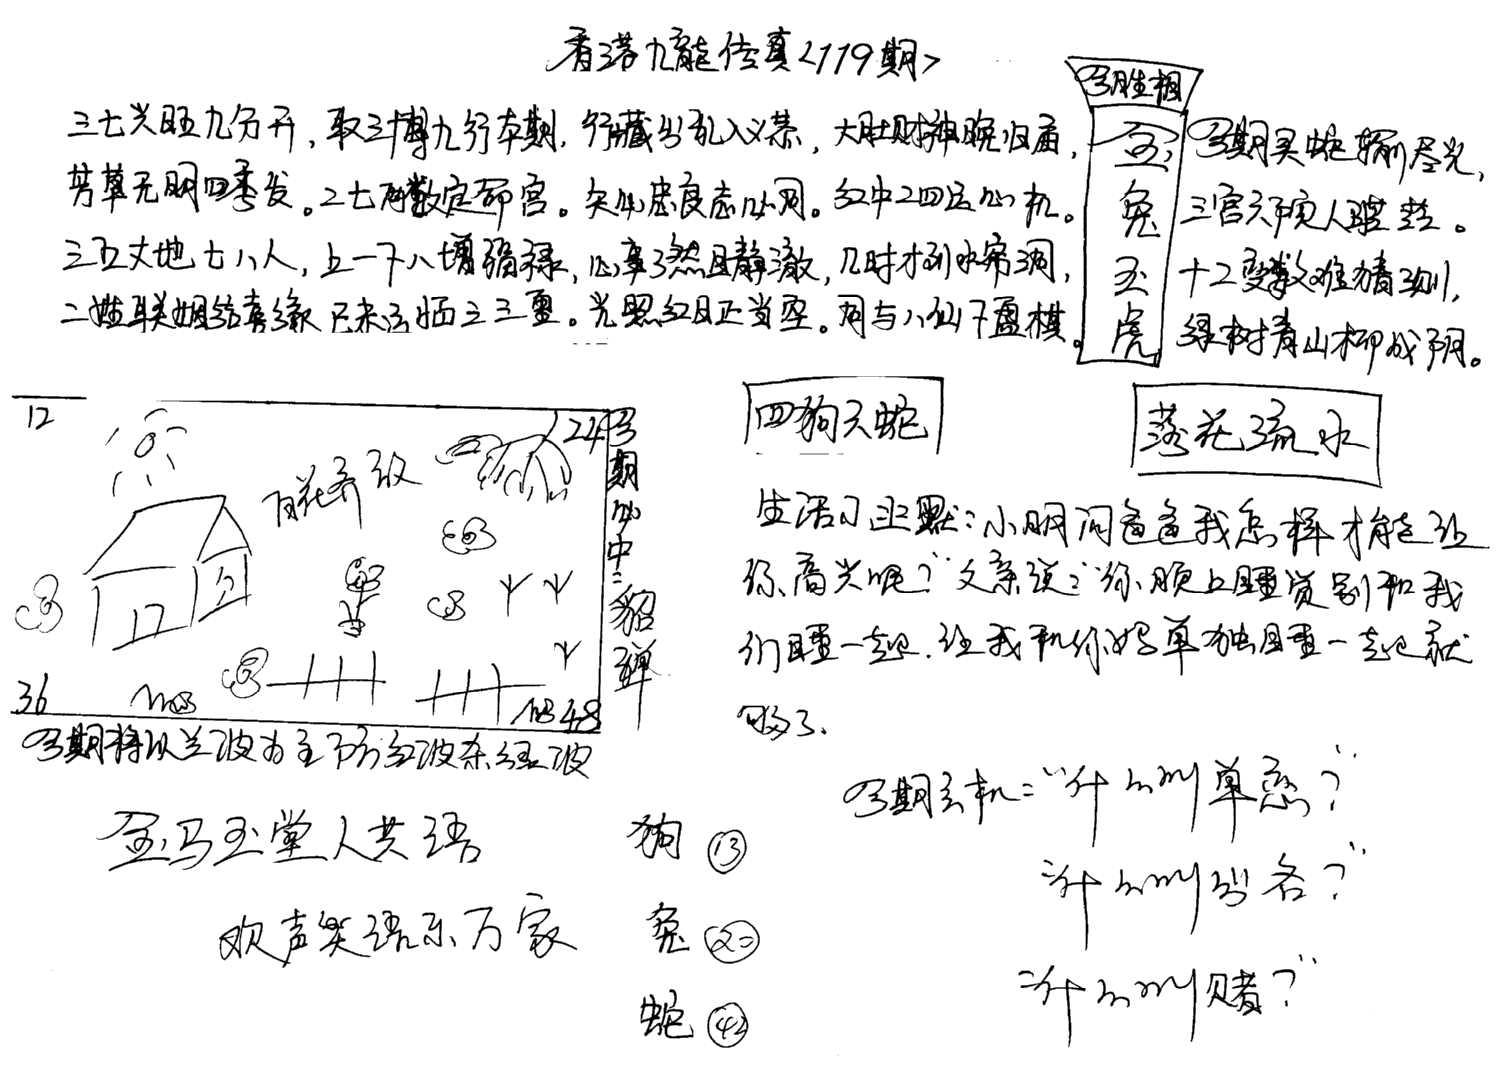 香港九龙传真<119期>
三七兴旺九分开，取三十博九行本期，行藏出乱入义恭，大肚财神晚归庙，
芳草无明四季发。二七两数定命宫。矢心忠良志必同。红中二四定心机。
三五丈地七八人，上一下八增福禄，心事了然且静澈，几时才到水帘洞，
二姓联姻结喜缘 三三重。光照红日正当空。同与八仙下盘棋。
今胜相
金
兔
玉
虎
今期买蛇输尽光，
三宫六院人
十二变数难猜测，
绿树青山柳成阴。
12
24
百花齐放
36
48
今期必中：貂蝉
今期将以兰波为主下防红波杀绿波
四狗天蛇
落花流水
生活习 幽默：小明问爸爸我怎样才能让
你高兴呢？"父亲说："你晚上睡觉别和我
们睡一起．让我和你妈单独睡一起就
够了．
今期玄机："什么叫单恋？"
"什么叫出名？"
"什么叫赌？"
金马玉堂人共语
欢声笑语乐万家
狗 13
兔 20
蛇 42